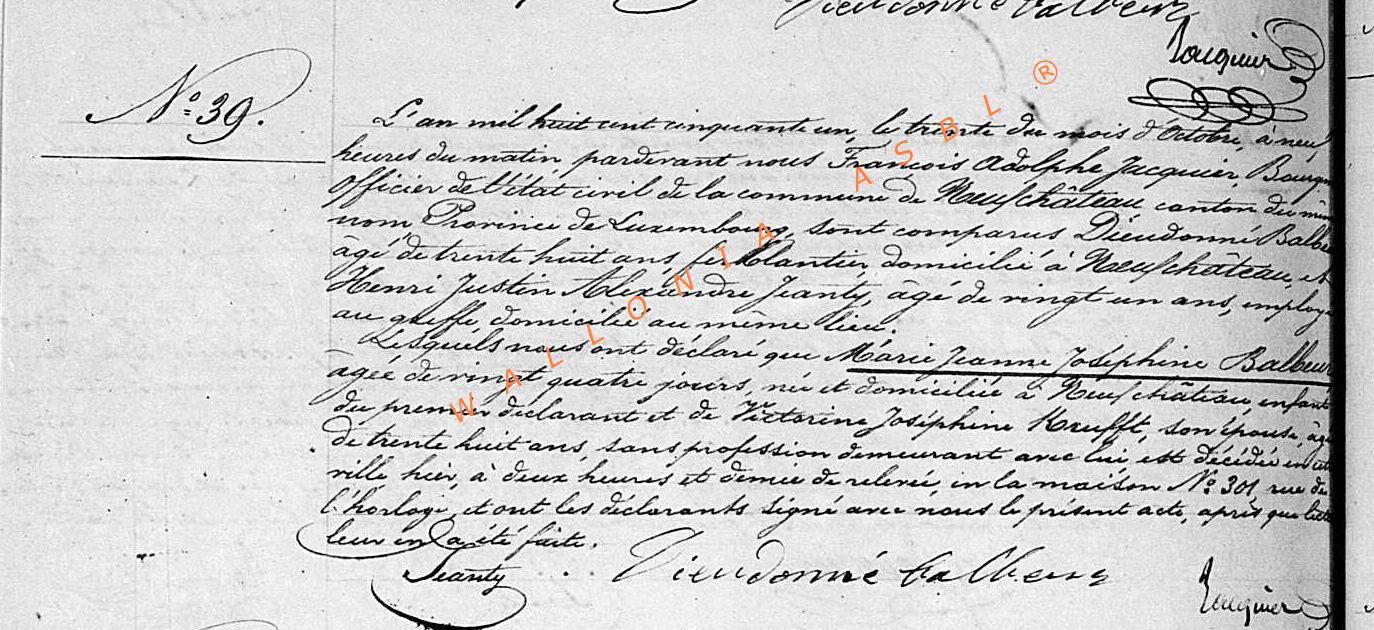 Dieudonné Balbeur
Jacquier
N° 39.
L'an mil huit cent cinquante un, le trente du mois d'Octobre, à neuf
heures du matin pardevant nous François Adolphe Jacquier, Bourgm
Officier de l'état civil de la commune de Neufchâteau canton du mêm
nom, Province de Luxembourg, sont comparus Dieudonné Balbeu
âgé de trente huit ans, ferblantier, domicilié à Neufchâteau, et
Henri Justin Alexandre Jeanty, âgé de vingt un ans, employé
au greffe, domicilié au même lieu.
Lesquels nous ont déclaré que Marie Jeanne Joséphine Balbeur
âgée de vingt quatre jours, née et domiciliée à Neufchâteau, enfant
du premier déclarant et de Victorine Joséphine Krufft, son épouse, âgé
de trente huit ans, sans profession demeurant avec lui est décédée en cett
ville hier, à deux heures et demie de relevée, en la maison N° 301, rue de
l'horloge, et ont les déclarants signé avec nous le présent acte, après que lect
leur en a été faite.
Jeanty Dieudonné Balbeur
Jacquier
WALLONIA ASBL ®